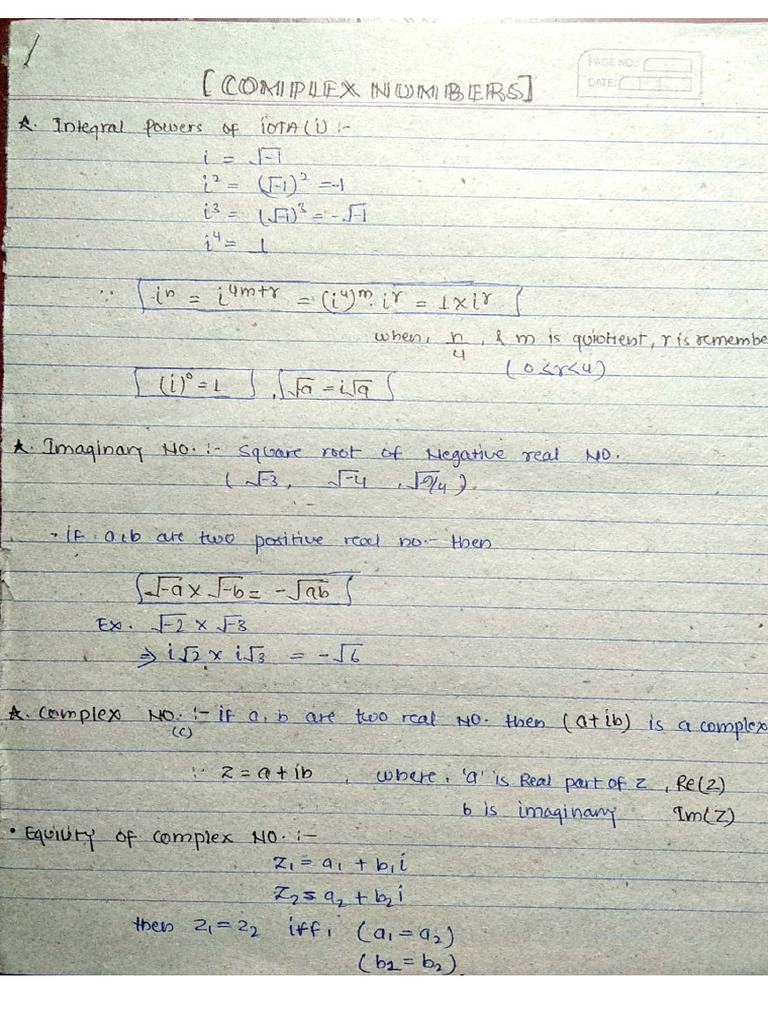 1
PAGE NO.:
DATE:
[COMPLEX NUMBERS]
★. Integral Powers of iOTA(i) :-
i = √-1
i² = (√-1)² = -1
i³ = (√-1)³ = -√-1
i⁴ = 1
∵ iⁿ = i⁴ᵐ⁺ʳ = (i⁴)ᵐ. iʳ = 1×iʳ
when, n/4, & m is quiotient, r is remembe
(0≤r<4)
(i)⁰ = 1 , √a = i√a
★. Imaginary NO. :- Square root of Negative real NO.
(√-3, √-4, √-9/4).
• if a,b are two positive real no.- then
√-a × √-b = -√ab
Ex. √-2 × √-3
⇒ i√2 × i√3 = -√6
★. Complex NO. :- if a, b are two real NO. then (a+ib) is a complex
(C)
∵ z = a+ib , where, 'a' is Real part of z , Re(z)
b is imaginary Im(z)
• Equility of complex NO. :-
z₁ = a₁ + b₁i
z₂ = a₂ + b₂i
then z₁ = z₂ iff, (a₁ = a₂)
(b₁ = b₂)